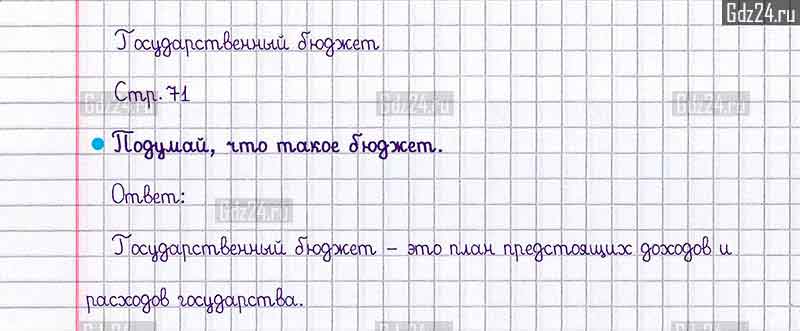 Gdz24.ru
Государственный бюджет
Стр. 71
Gdz24.ru Gdz24.ru Gdz24.ru
Подумай, что такое бюджет.
Ответ:
Gdz24.ru
Государственный бюджет – это план предстоящих доходов и
расходов государства.
Gdz24.ru Gdz24.ru Gdz24.ru